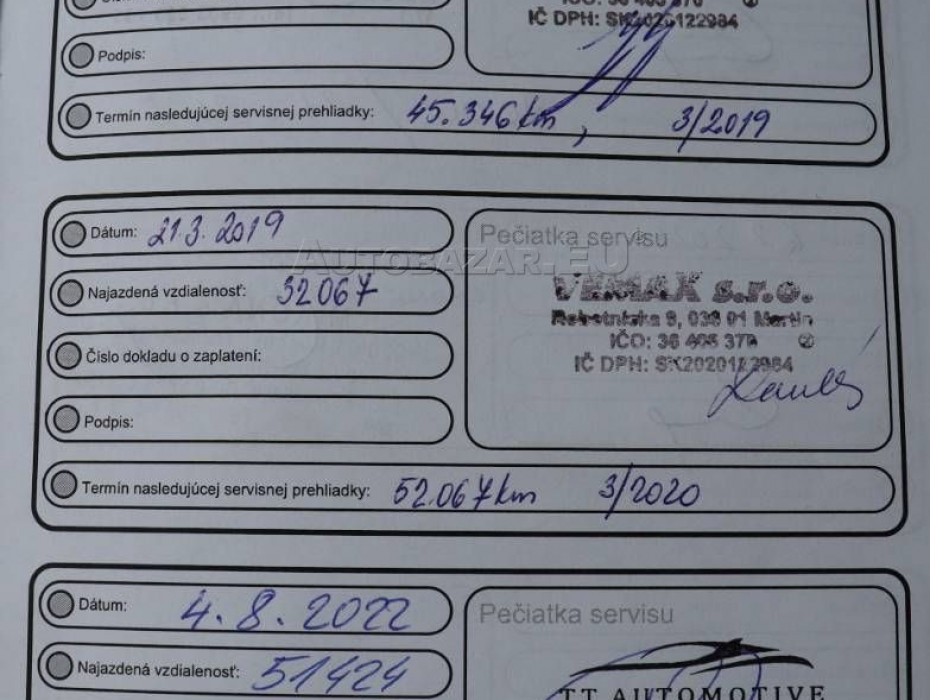 IČ DPH: SK2020122984
Podpis:
Termín nasledujúcej servisnej prehliadky: 45.346 km, 3/2019
Dátum: 21.3.2019
Pečiatka servisu
AUTOBAZAR.EU
Najazdená vzdialenosť: 32067
VEMAX s.r.o.
038 01 Martin
Číslo dokladu o zaplatení:
IČO: 36 405 370
IČ DPH: SK2020122984
Podpis:
Termín nasledujúcej servisnej prehliadky: 52.067 km 3/2020
Dátum: 4.8.2022
Pečiatka servisu
Najazdená vzdialenosť: 51424
TT AUTOMOTIVE